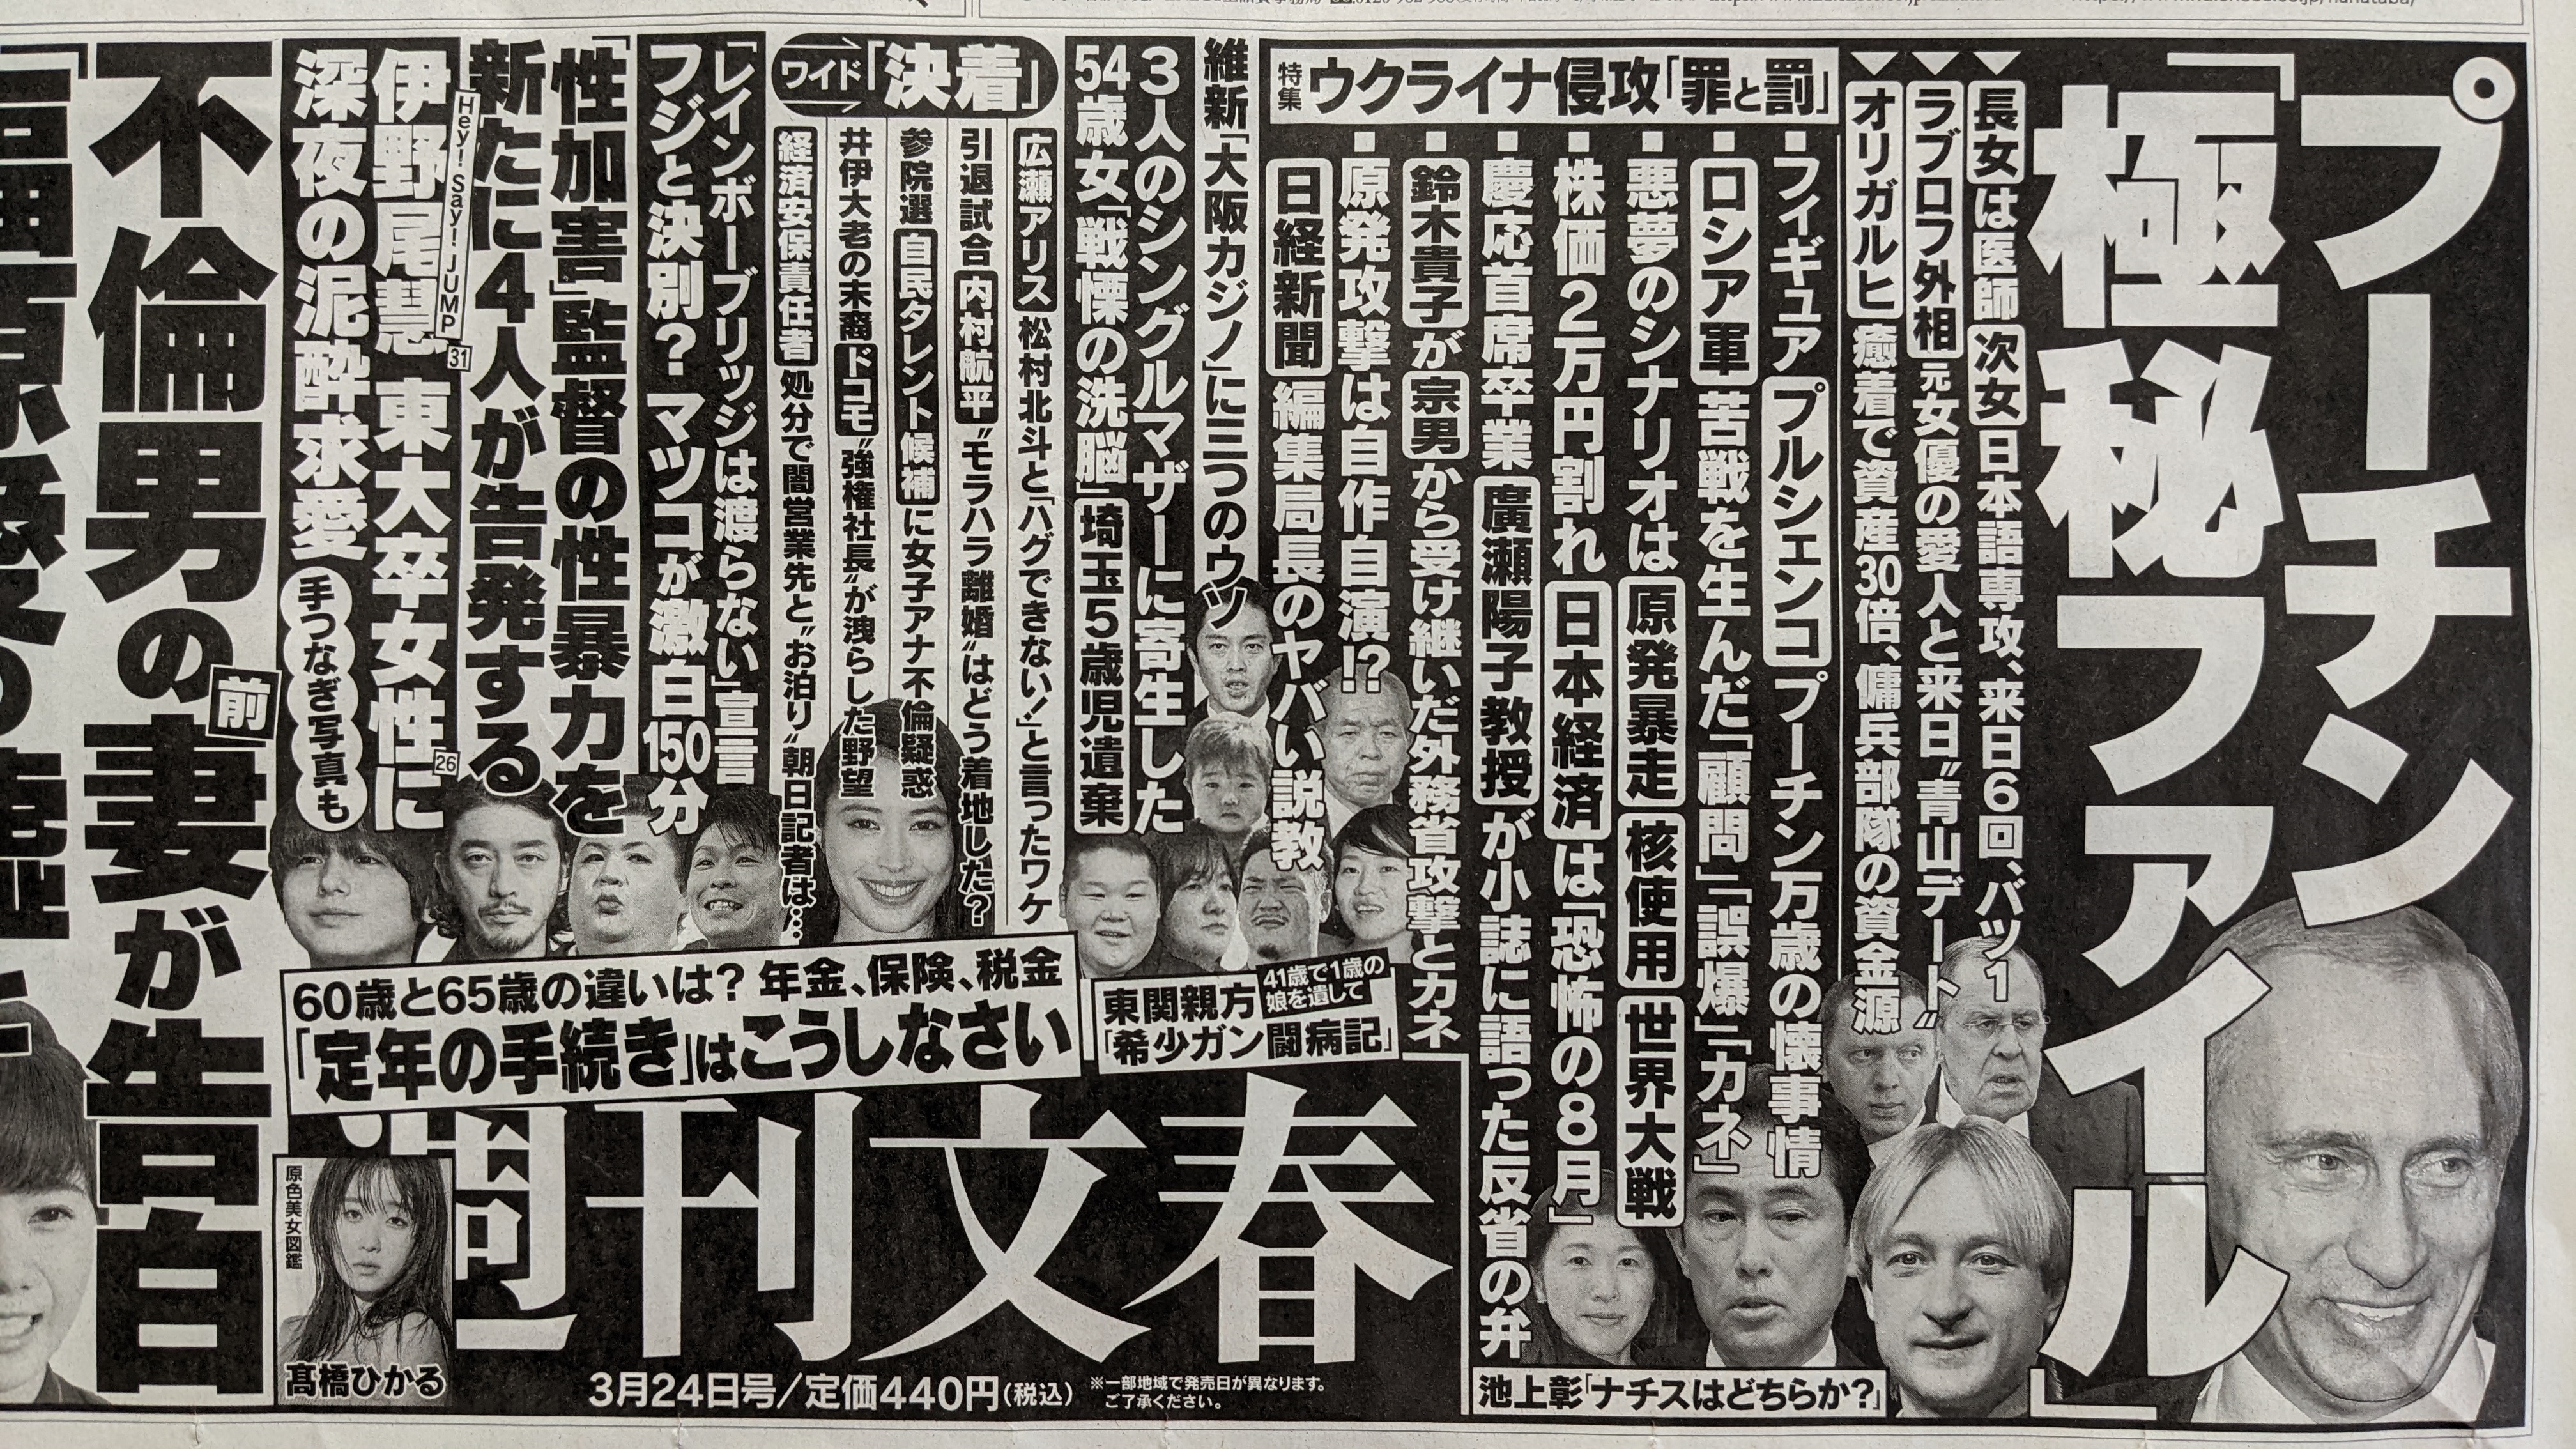 プーチン
「極秘ファイル」
長女は医師 次女日本語専攻、来日6回、バツ1
ラブロフ外相 元女優の愛人と来日〝青山デート〟
オリガルヒ 癒着で資産30倍、傭兵部隊の資金源
特集 ウクライナ侵攻「罪と罰」
フィギュア プルシェンコ プーチン万歳の懐事情
ロシア軍 苦戦を生んだ「顧問」「誤爆」「カネ」
悪夢のシナリオは 原発暴走 核使用 世界大戦
株価2万円割れ 日本経済は「恐怖の8月」
慶応首席卒業 廣瀬陽子教授が小誌に語った反省の弁
鈴木貴子が宗男から受け継いだ外務省攻撃とカネ
原発攻撃は自作自演!?
日経新聞 編集局長のヤバい説教
池上彰「ナチスはどちらか?」
維新「大阪カジノ」に三つのウソ
3人のシングルマザーに寄生した
54歳女「戦慄の洗脳」 埼玉5歳児遺棄
東関親方 41歳で1歳の
娘を遺して
「希少ガン闘病記」
ワイド「決着」
広瀬アリス 松村北斗と「ハグできない!」と言ったワケ
引退試合 内村航平〝モラハラ離婚〟はどう着地した?
参院選 自民タレント候補に女子アナ不倫疑惑
井伊大老の末裔 ドコモ〝強権社長〟が洩らした野望
経済安保責任者 処分で闇営業先と〝お泊り〟朝日記者は…
「レインボーブリッジは渡らない」宣言
フジと決別? マツコが激白150分
「性加害」監督の性暴力を
新たに4人が告発する
Hey! Say! JUMP
伊野尾慧 31 東大卒女性に 26
深夜の泥酔求愛 手つなぎ写真も
60歳と65歳の違いは? 年金、保険、税金
「定年の手続き」はこうしなさい
週刊文春
3月24日号/定価440円(税込)
※一部地域で発売日が異なります。
ご了承ください。
原色美女図鑑
髙橋ひかる
不倫男の前妻が告白